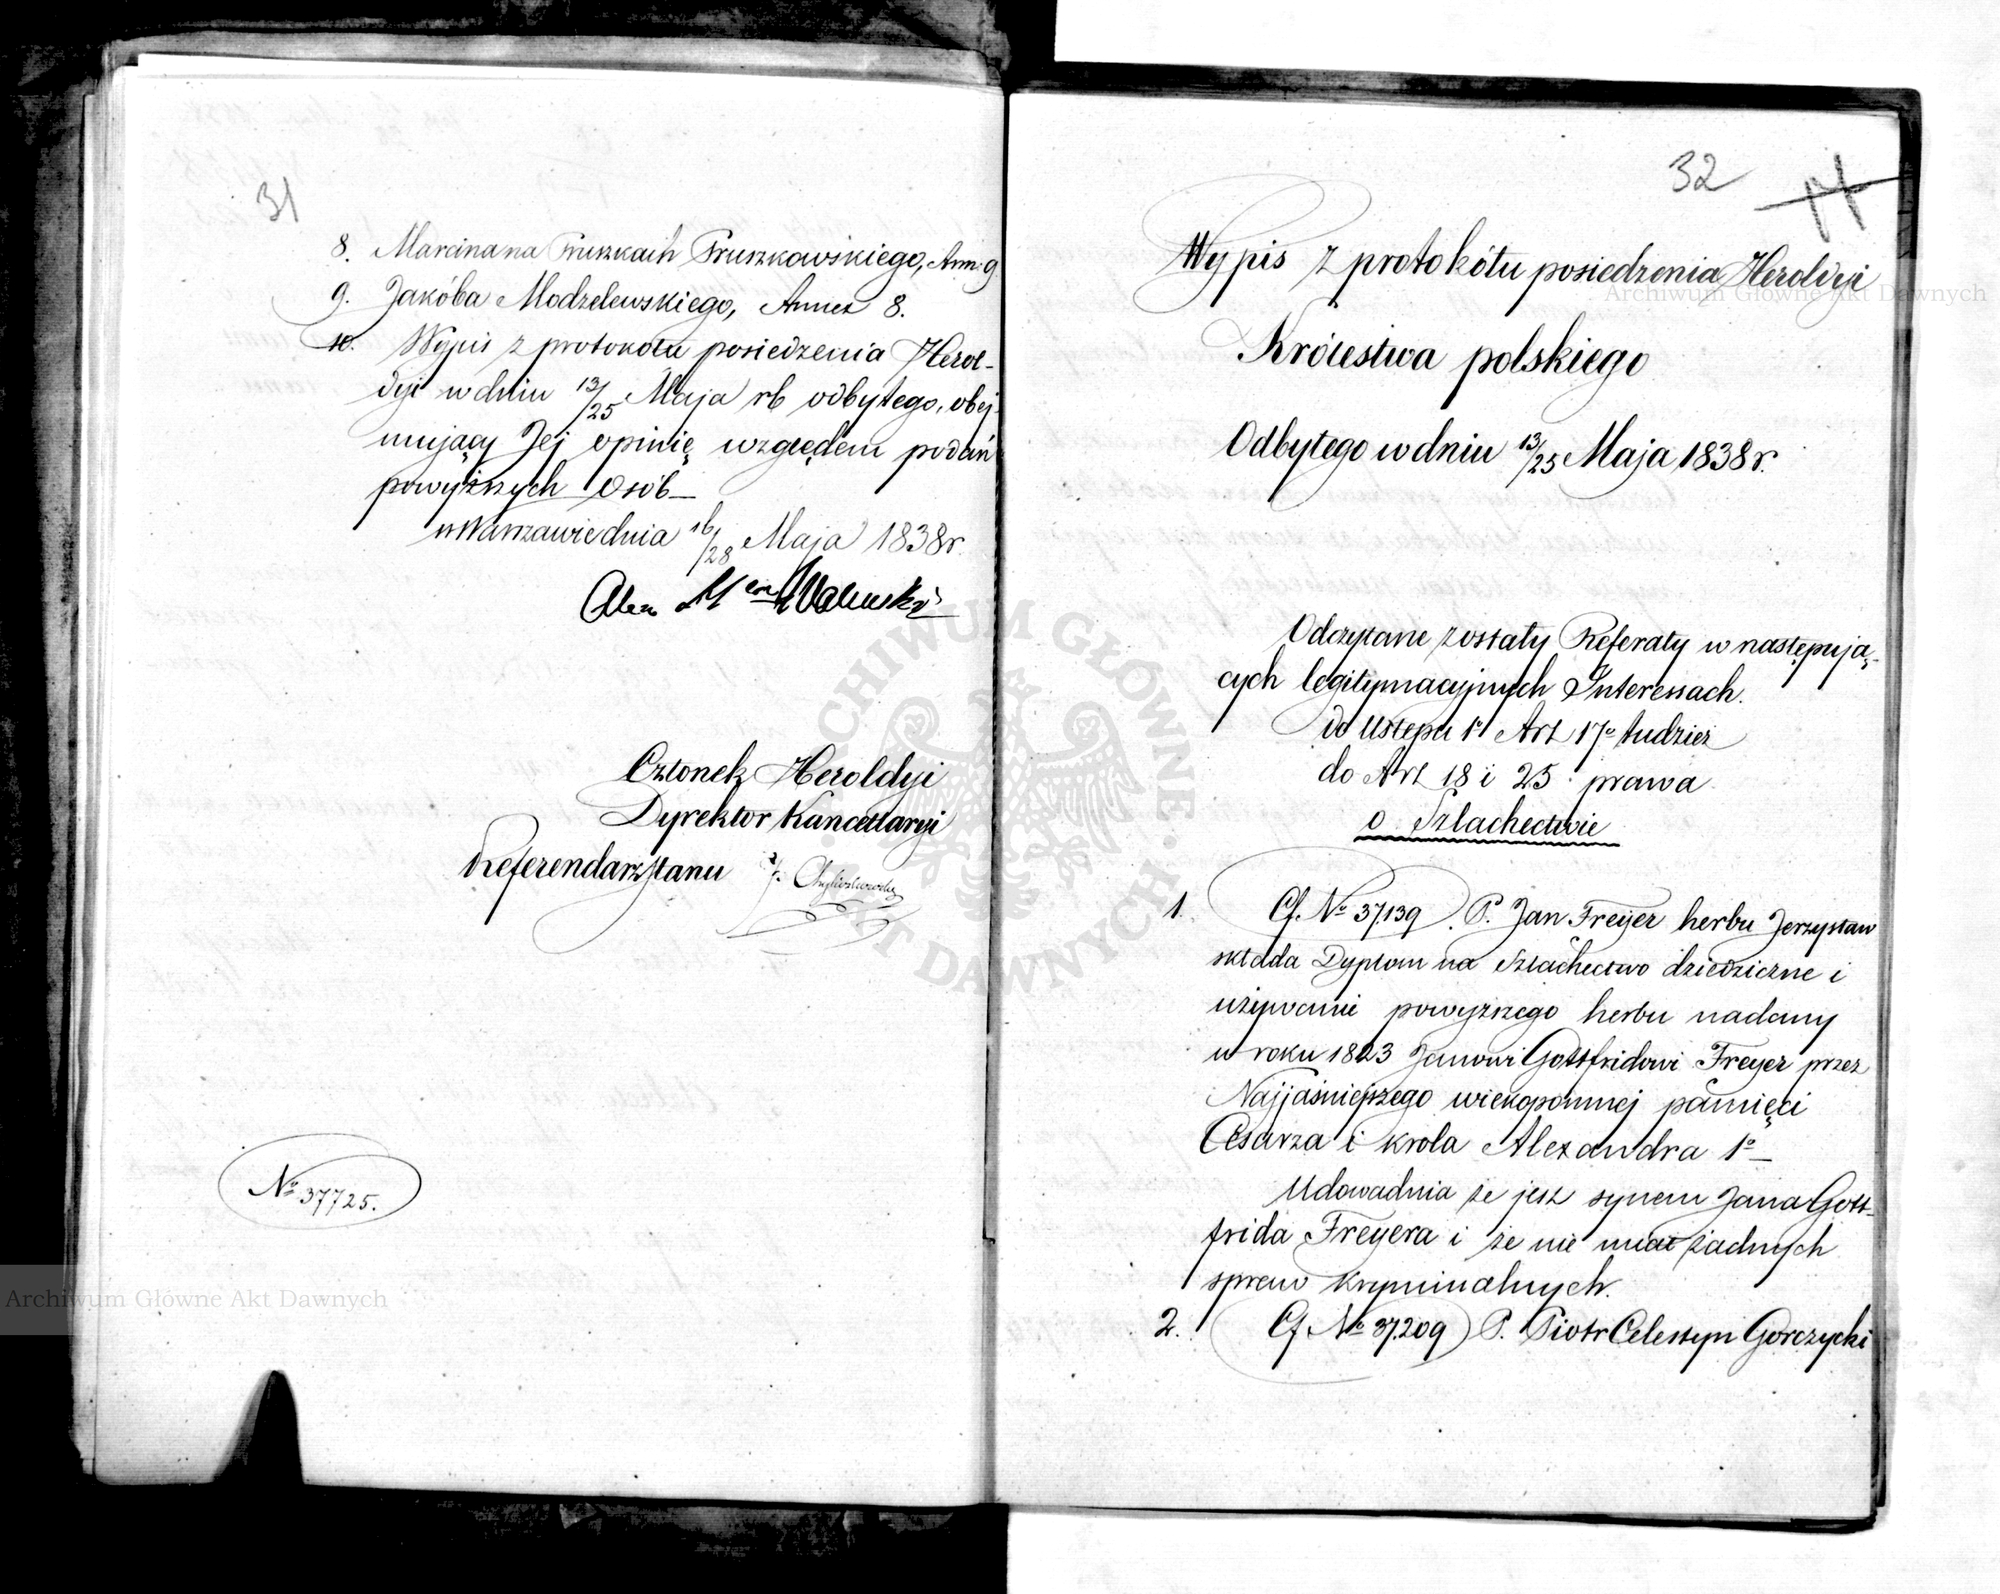 31
8. Marcina na Pruszkach Pruszkowskiego, Ann: 9
9. Jakóba Modzelewskiego, Annex 8.
10. Wypis z protokółu posiedzenia Herol-
dyi w dniu 13/25 Maja rb odbytego, obej
mujący Jej opinię względem podań
powyższych Osób
w Warszawie dnia 16/28 Maja 1838 r.
Członek Heroldyi
Dyrektor Kancellaryi
Referendarz Stanu
No 37725.
Archiwum Główne Akt Dawnych
32
Wypis z protokółu posiedzenia Heroldyi
Archiwum Główne Akt Dawnych
Królestwa polskiego
Odbytego w dniu 13/25 Maja 1838 r.
Odczytane zostały Referaty w następują-
cych legitymacyjnych Interessach.
do Ustępu 1o Art 17o tudzież
do Art 18 i 25 prawa
o Szlachectwie
1. Cf. No 37,139. P. Jan Freyer herbu Jerzystaw
składa Dyplom na Szlachectwo dziedziczne i
używanie powyższego herbu nadany
w roku 1823 Janowi Gottfridowi Freyer przez
Najjaśniejszego wiekopomnej pamięci
Cesarza i krola Alexandra 1o
Udowadnia że jest synem Jana Gott-
frida Freyera i że nie miał żadnych
spraw kryminalnych.
2. Cf. No 37,209 P. Piotr Celestyn Gorczycki
ARCHIWUM GŁÓWNE AKT DAWNYCH